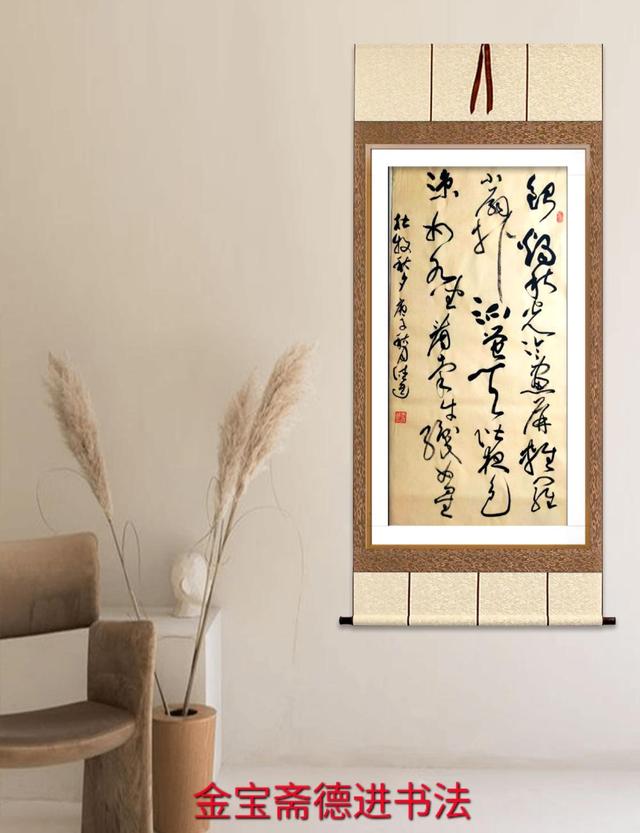 銀燭秋光冷畫屏輕羅
小扇扑流萤天阶夜色
凉如水坐看牵牛織女星
杜牧秋夕庚子秋月德进
金宝斋德进书法